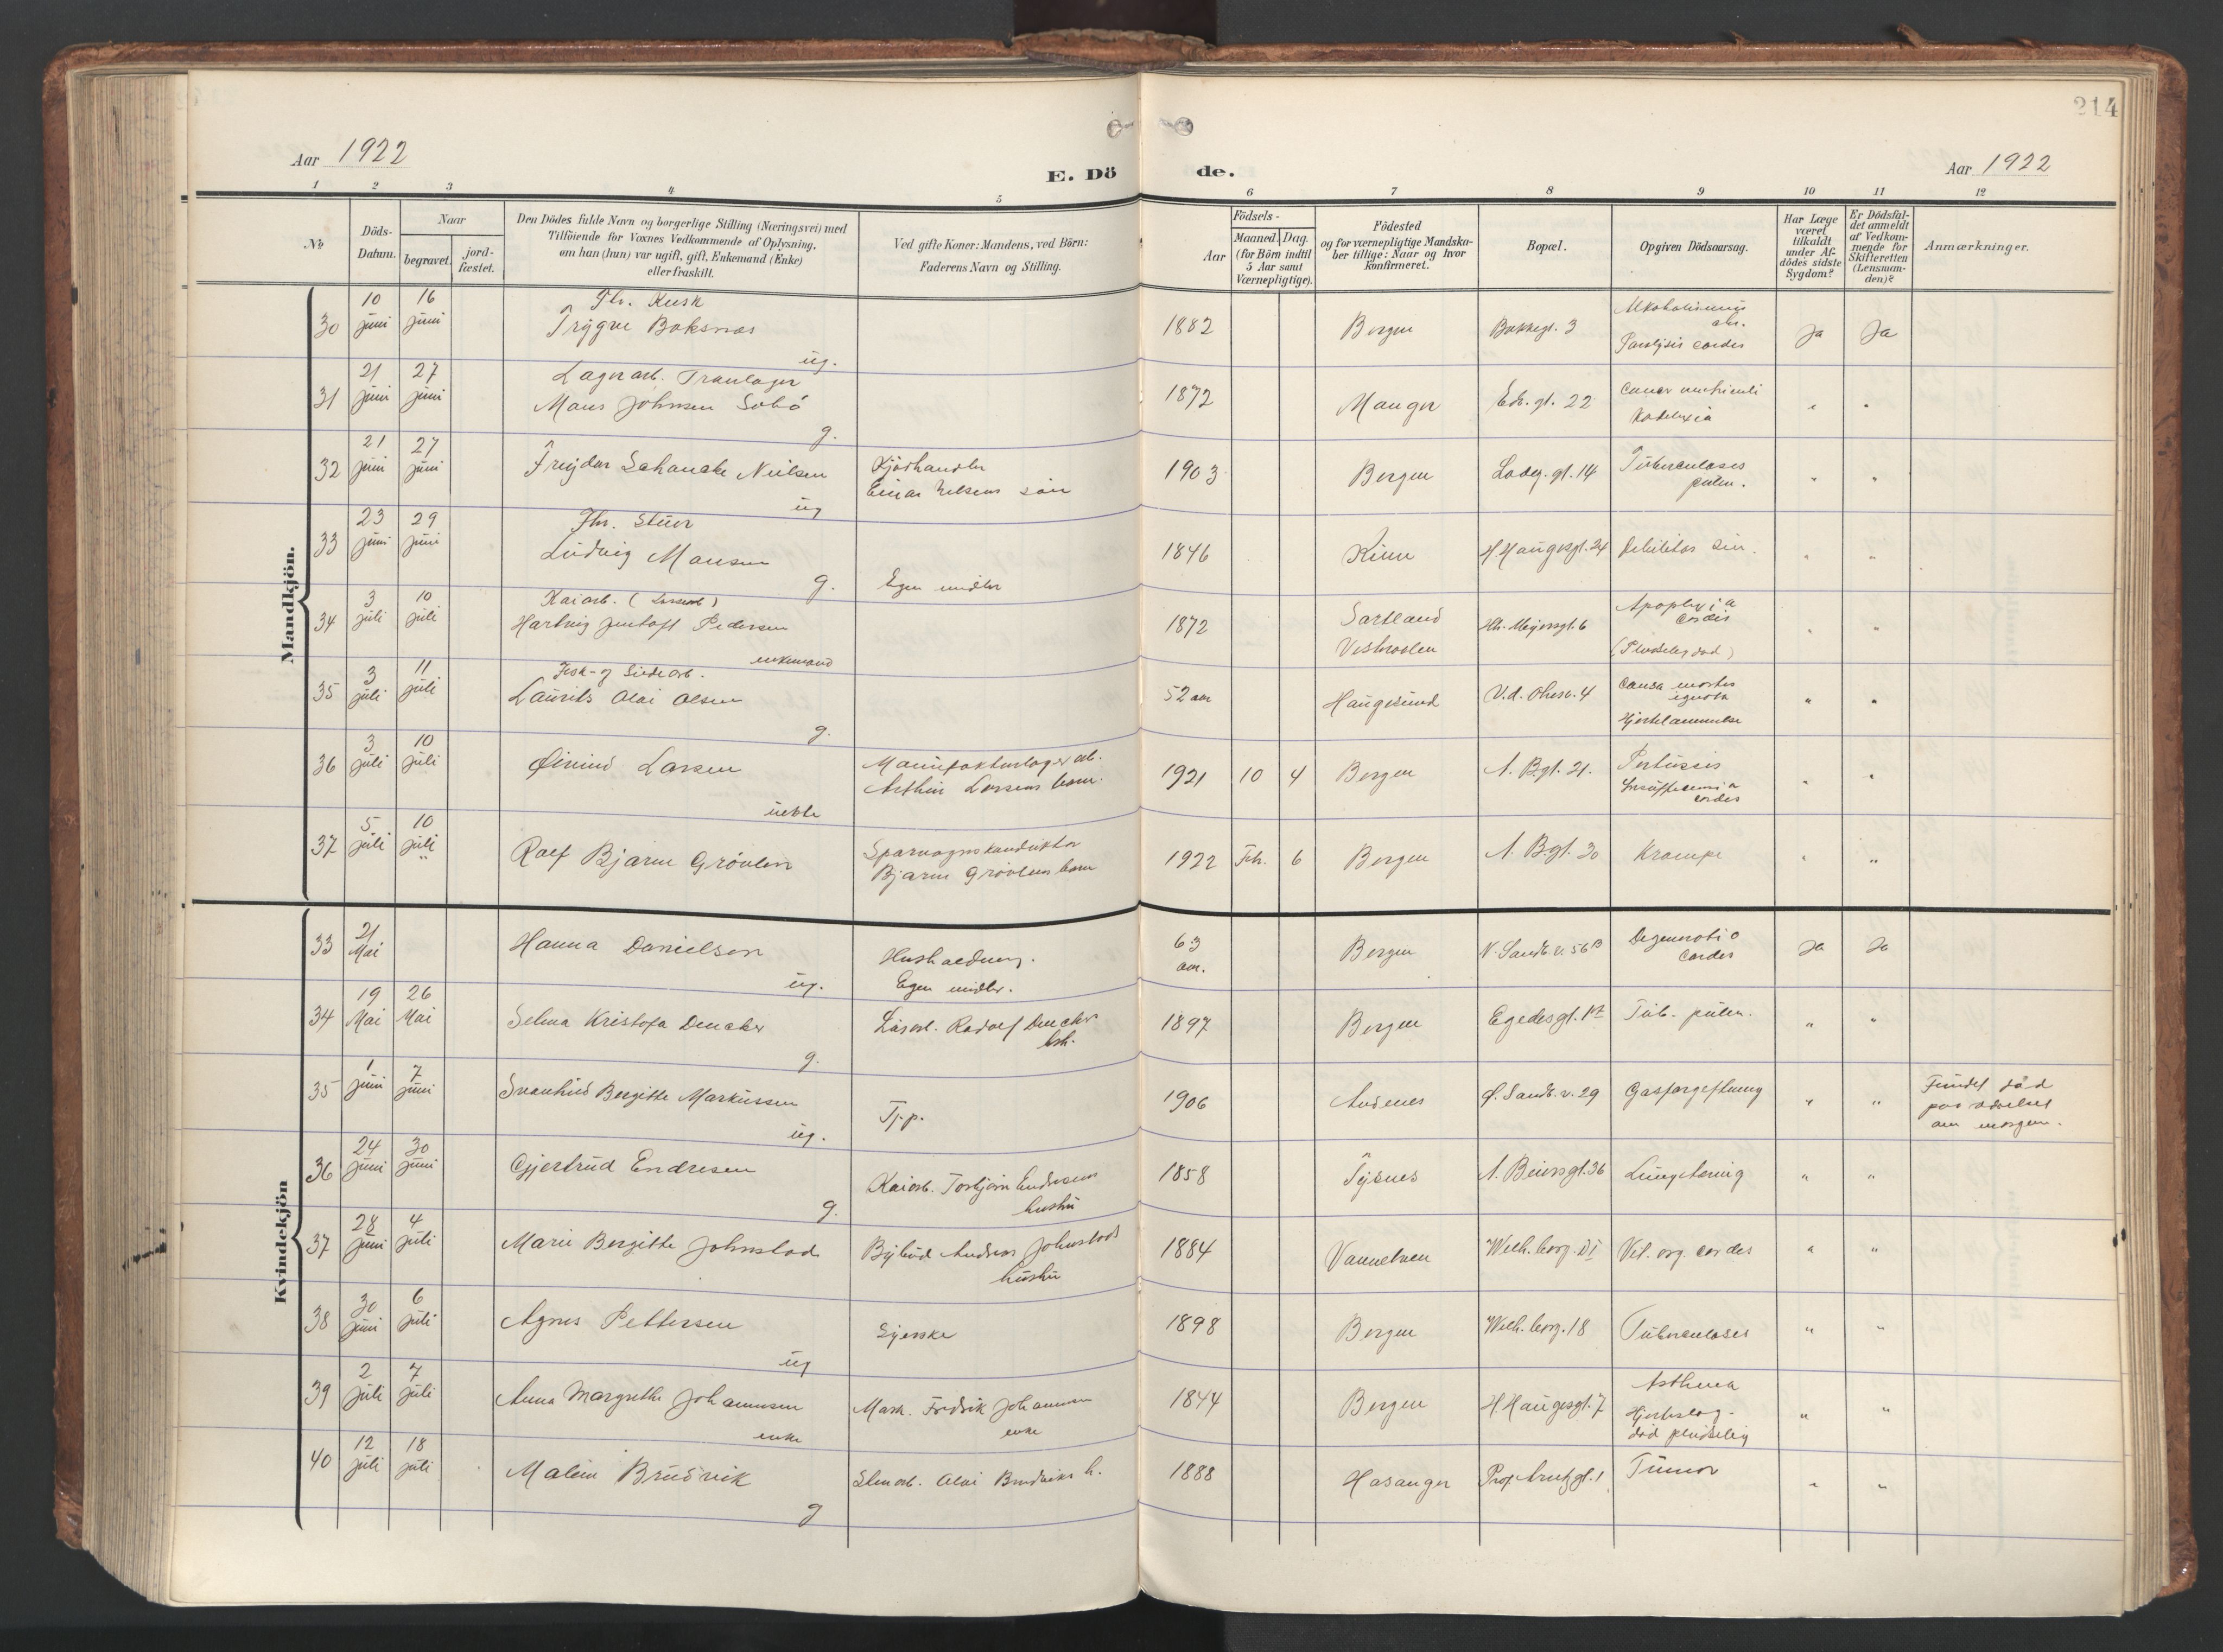 214
Aar 1922
E. Dö
de.
Aar 1922
1 2 3 4 5 6 7 8 9 10 11 12
No
Döds-
Datum.
Naar
begravet.
jord-
fæstet.
Den Dödes fulde Navn og borgerlige Stilling (Næringsvei) med
Tilföiende for Voxnes Vedkommende af Oplysning,
om han (hun) var ugift, gift, Enkemand (Enke)
eller fraskilt.
Ved gifte Koner: Mandens, ved Börn:
Faderens Navn og Stilling.
Aar
Födsels-
Maaned. Dag.
(for Börn indtil
5 Aar samt
Værnepligtige).
Födested
og for værnepligtige Mandska-
ber tillige: Naar og hvor
konfirmeret.
Bopæl.
Opgiven Dödsaarsag.
Har Læge
været
tilkaldt
under Af-
dödes sidste
Sygdom?
Er Dödsfal-
det anmeldt
af Vedkom-
mende for
Skifteretten
(Lensman-
den)?
Anmærkninger.
Mandkjön.
30
10 juni
16 juni
Fhv. Kusk
Trygve Boksnæs
ug.
1882
Bergen
Bakkegt. 3
Alkoholismus
chr.
Paralysis cordis
Ja
Ja
31
21 juni
27 juni
Lagerarb. Tranlager
Mans Johnsen Sebö
g.
1872
Manger
Edv. gt. 22
Cancer ventriculi
"
"
32
21 juni
27 juni
Freydar Schancke Nielsen
ug
Kjöthandler
Einar Nelsens sön
1903
Bergen
Lodeg. gt. 14
Tuberculosis
pulm.
"
"
33
23 juni
29 juni
Fhv. Stuer
Ludvig Mansen
g.
Egne midler
1846
Kinn
H. Haugesgt. 24
Debilitas sen.
"
"
34
3 juli
10 juli
Kaiarb. (Lossearb)
Hartvig Pedersen
enkemand
1872
Sortland
Vesteraalen
Hb. Meyersgt. 6
Apoplexia
cordis
(Pludselig död)
"
"
35
3 juli
11 juli
Fisk- og Sildearb.
Laurits Olai Olsen
g.
52 aar
Haugesund
V.d. Ohesv. 4
Causa mortis
ignota
Hjertelammelse
"
"
36
3 juli
10 juli
Øivind Larsen
uekte
Manufakturlager arb.
Arthur Larsens barn.
1921
10
4
Bergen
N. Bgt. 21.
Pertussis
Insufficiensia
cordis
"
"
37
5 juli
10 juli
"
Rolf Bjarne Grövlen
Sporvognskonduktör
Bjarne Grövlens barn
1922
Feb.
6
Bergen
N. Bgt. 30
Krampe
"
"
Kvindekjön
33
21 Mai
Hanna Danielsen
ug.
Husholdning.
Egne midler.
63
aar.
Bergen
N. Sandv. v. 56 B
Degeneratio
Cordis
Ja
Ja
34
19 Mai
26 Mai
Selma Kristofa Dencker
g.
Rudolf Dencker
hstr.
1897
Bergen
Egedesgt. 17
Tub. pulm.
"
"
35
1 juni
7 juni
Svanhild Bergitte Markussen
ug.
Tj.p.
1906
Andenes
Ø. Sandv. v. 29
Gasforgiftning
"
"
Fundet död
paa værelset
om morgen.
36
24 juni
30 juni
Gjertrud Endresen
g.
Kaiarb. Torbjørn Endresens
hustru
1858
Tysnes
N. Beiersgt. 36
Lungetæring
"
"
37
28 juni
4 juli
Marie Bergitte Johnstad
Bybud Andreas Johnstads
hustru
1884
Vannelven
Welh. borg. VI
Vit. org. cordis
"
"
38
30 juni
6 juli
Agnes Pettersen
ug
Syerske
1898
Bergen
Welh. borg. 18
Tuberculoses
"
"
39
2 juli
7 juli
Anna Margrethe Johannesen
enke
Mask. Fredrik Johannesen
enke
1844
Bergen
H. Haugesgt. 7
Asthma
Hjerteslag -
död pludselig
"
"
40
12 juli
18 juli
Malene Brudvik
g
Stenarb. Olai Brudviks h.
1888
Hosanger
Prof. Arntzgt. 1
Tumor
"
"